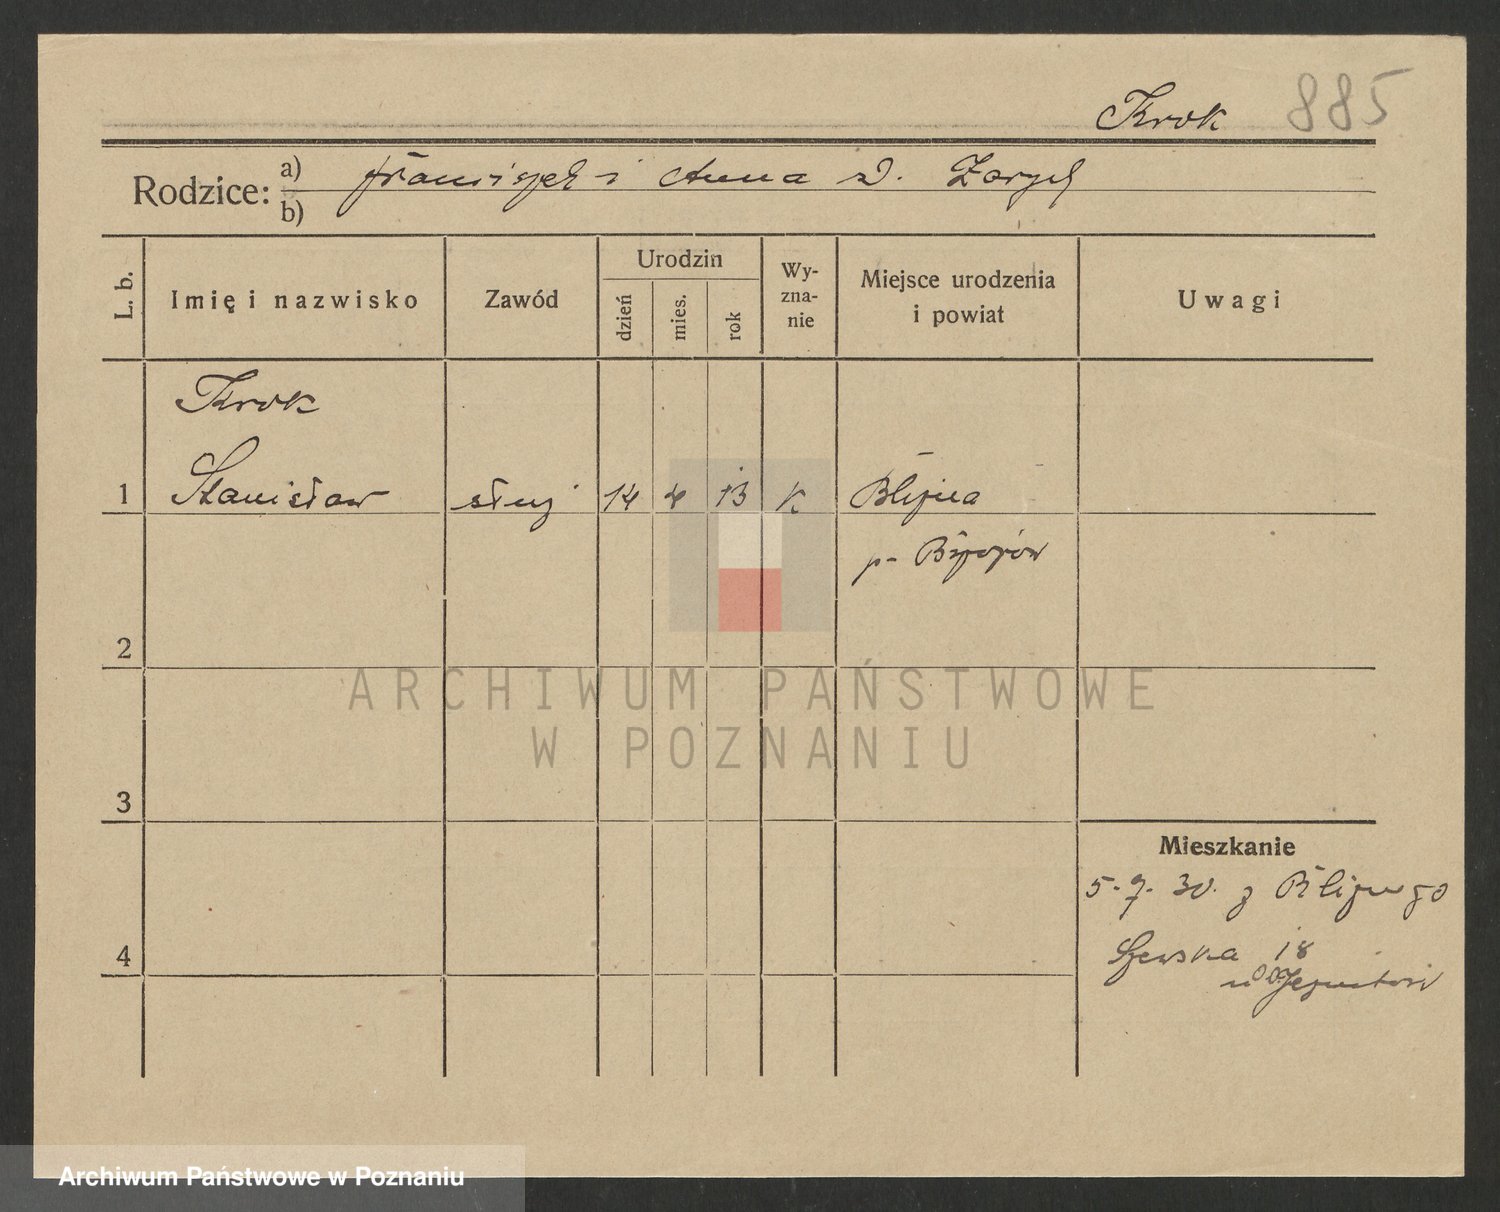 Krok 885
Rodzice: a) Franciszek i Anna d.
b)
L. b. Imię i nazwisko Zawód Urodzin dzień mies. rok Wyznanie Miejsce urodzenia i powiat Uwagi
Krok
1 Stanisław służ 14 4 13 k
p-
2
ARCHIWUM PAŃSTWOWE
W POZNANIU
3
Mieszkanie
5. 7. 30. z
4
Szewska 18
u OO. Jezuitów
Archiwum Państwowe w Poznaniu